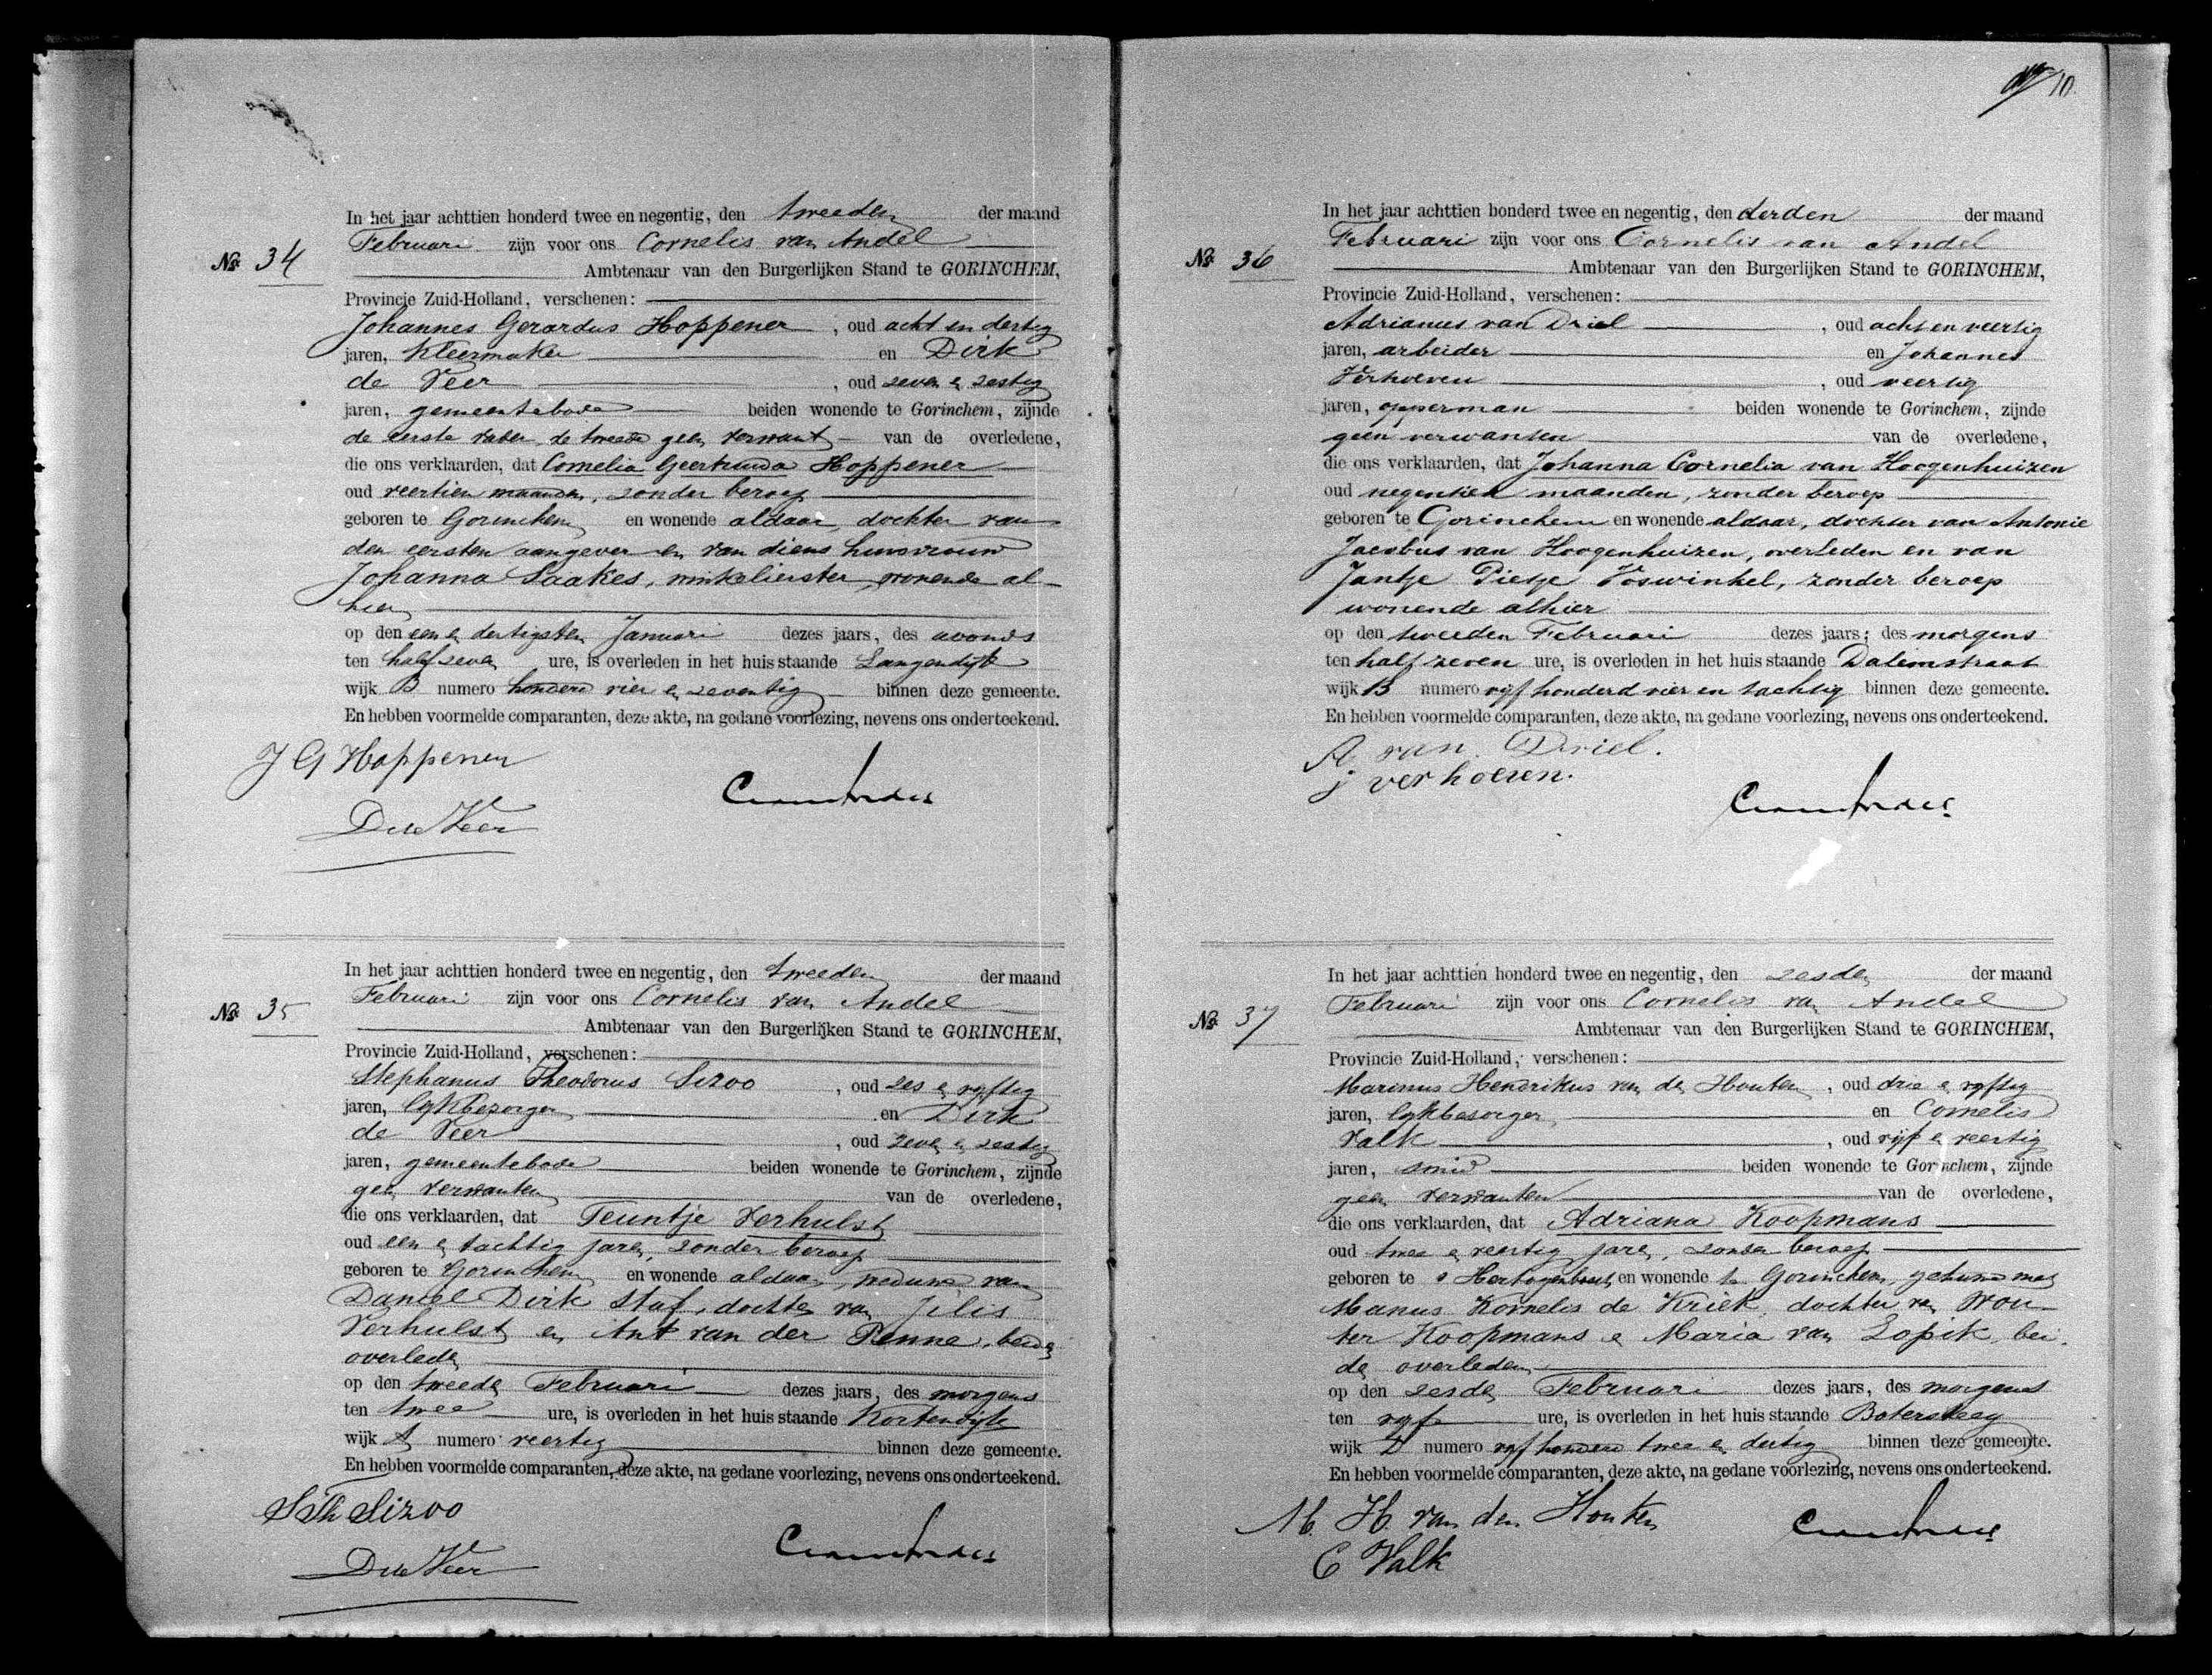 10.
In het jaar achttien honderd twee en negentig, den tweeden der maand
Februari zijn voor ons Cornelis van Andel
No. 34
Ambtenaar van den Burgerlijken Stand te GORINCHEM,
Provincie Zuid-Holland, verschenen:
Johannes Gerardus Hoppener, oud acht en dertig
jaren, kleermaker en Dirk
de Veer, oud zeven en zestig
jaren, gemeentebode beiden wonende te Gorinchem, zijnde
de eerste vader, de tweede geen verwant van de overledene,
die ons verklaarden, dat Cornelia Geertruida Hoppener
oud veertien maanden, zonder beroep
geboren te Gorinchem en wonende aldaar, dochter van
den eersten aangever en van diens huisvrouw
Johanna Saakes, winkelierster, wonende al-
hier
op den een en dertigsten Januari dezes jaars, des avonds
ten half zeven ure, is overleden in het huis staande Langendijk
wijk B numero honderd vier en zeventig binnen deze gemeente.
En hebben voormelde comparanten, deze akte, na gedane voorlezing, nevens ons onderteekend.
J G Hoppener
D de Veer
In het jaar achttien honderd twee en negentig, den tweeden der maand
Februari zijn voor ons Cornelis van Andel
No. 35
Ambtenaar van den Burgerlijken Stand te GORINCHEM,
Provincie Zuid-Holland, verschenen:
Stephanus Theodorus Sizoo, oud zes en vyftig
jaren, lykbezorger en Dirk
de Veer, oud zeven en zestig
jaren, gemeentebode beiden wonende te Gorinchem, zijnde
geen verwanten van de overledene,
die ons verklaarden, dat Teuntje Verhulst
oud een en tachtig jaren, zonder beroep
geboren te Gorinchem en wonende aldaar, weduwe van
Daniel Dirk Staf, dochter van Jelis
Verhulst en Ant van der Penne, beiden
overleden
op den tweeden Februari dezes jaars, des morgens
ten twee ure, is overleden in het huis staande Kortendijk
wijk A numero veertig binnen deze gemeente.
En hebben voormelde comparanten, deze akte, na gedane voorlezing, nevens ons onderteekend.
S Th Sizoo
D de Veer
In het jaar achttien honderd twee en negentig, den derden der maand
Februari zijn voor ons Cornelis van Andel
No. 36
Ambtenaar van den Burgerlijken Stand te GORINCHEM,
Provincie Zuid-Holland, verschenen:
Adrianus van Driel, oud acht en veertig
jaren, arbeider en Johannes
Verhoeven, oud veertig
jaren, opperman beiden wonende te Gorinchem, zijnde
geen verwanten van de overledene,
die ons verklaarden, dat Johanna Cornelia van Hoogenhuizen
oud negentien maanden, zonder beroep
geboren te Gorinchem en wonende aldaar, dochter van Antonie
Jacobus van Hoogenhuizen, overleden en van
Jantje Pietje Voswinkel, zonder beroep
wonende alhier
op den tweeden Februari dezes jaars; des morgens
ten half zeven ure, is overleden in het huis staande Dalemstraat
wijk B numero vyf honderd vier en tachtig binnen deze gemeente.
En hebben voormelde comparanten, deze akte, na gedane voorlezing, nevens ons onderteekend.
A van Driel.
j verhoeven.
In het jaar achttien honderd twee en negentig, den zesden der maand
Februari zijn voor ons Cornelis van Andel
No. 37
Ambtenaar van den Burgerlijken Stand te GORINCHEM,
Provincie Zuid-Holland, verschenen:
Marinus Hendrikus van den Houten, oud drie en vyftig
jaren, lykbezorger en Cornelis
Valk, oud vijf en veertig
jaren, smid beiden wonende te Gorinchem, zijnde
geen verwanten van de overledene,
die ons verklaarden, dat Adriana Koopmans
oud twee en veertig jaren, zonder beroep
geboren te s Hertogenbosch en wonende te Gorinchem, gehuwd met
Manus Kornelis de Kriek, dochter van Wou-
ter Koopmans en Maria van Lopik, bei-
den overleden
op den zesden Februari dezes jaars, des morgens
ten vyf ure, is overleden in het huis staande Botersteeg
wijk D numero vyf honderd twee en dertig binnen deze gemeente.
En hebben voormelde comparanten, deze akte, na gedane voorlezing, nevens ons onderteekend.
M. H. van den Houten
C Valk